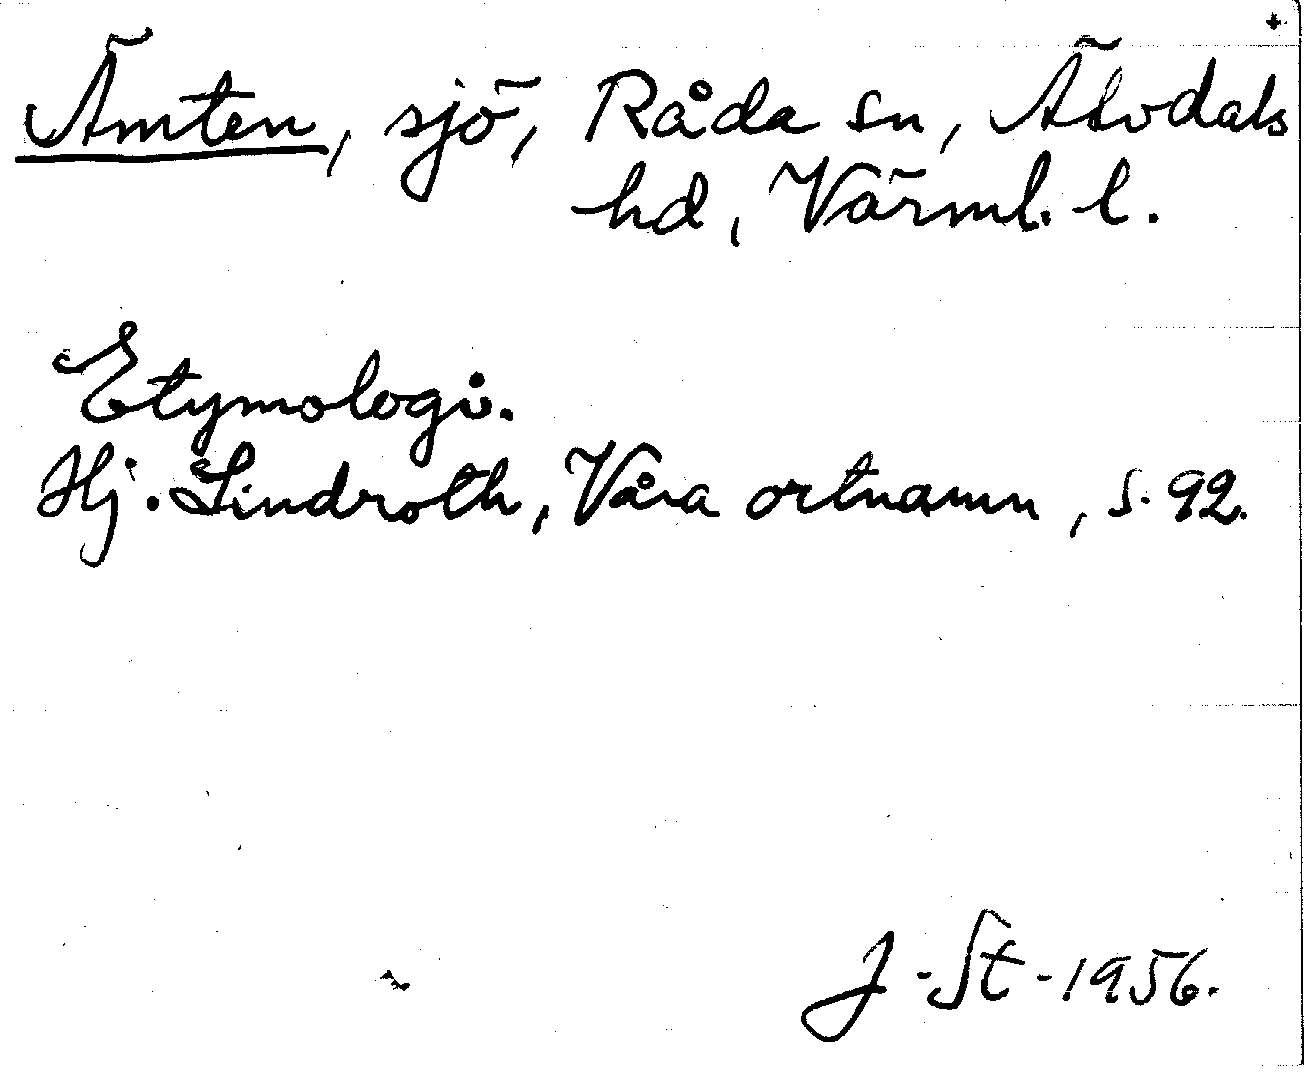 Ämten, sjö, Råda sn, Älvdals
hd, Värml. l.
Etymologi.
Hj. Lindroth, Våra ortnamn, s. 92.
J-St-1956.